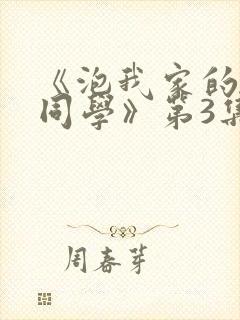 《泡我家的
同學》第3集
周春芽